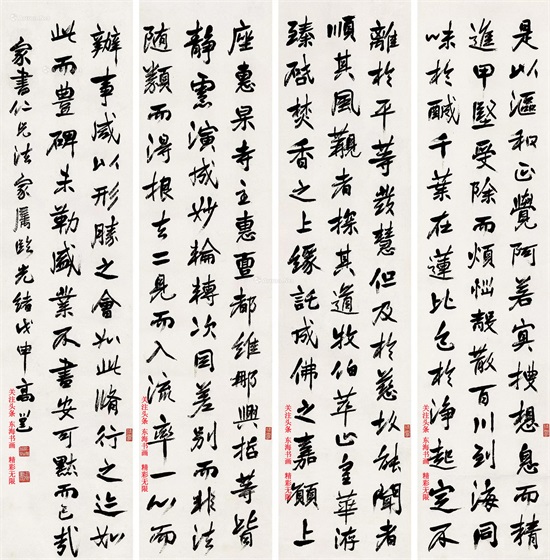 是以漚和正覺阿若冥搜想息而精
進甲堅受除而煩惱散百川到海同
味於鹹千葉在蓮比色於淨起定不
離於平等發慧但及於慈故能聞者
順其風觀者探其道牧伯萃止皇華游
臻啟焚香之上緣託成佛之嘉願上
座惠杲寺主惠亶都維那興哲等皆
靜慮演成妙輪轉次因差別而非法
随類而得根去二見而入流率一心而
辦事咸以形勝之會如此脩行之迹如
此而豊碑未勒盛業不書安可默而已哉
家書仁兄法家屬臨光緒戊申高邕
关注头条 东海书画 精彩无限
关注头条 东海书画 精彩无限
关注头条 东海书画 精彩无限
关注头条 东海书画 精彩无限